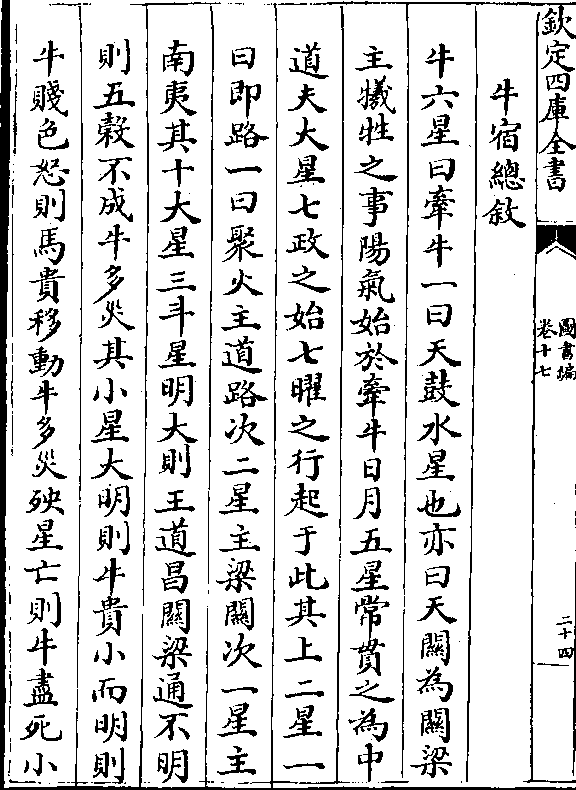 欽定四庫全書
圖書編
卷十七
二十四
牛宿總敘
牛六星曰牽牛一曰天鼓水星也亦曰天關為關梁
主犧牲之事陽氣始於牽牛日月五星常貫之為中
道夫大星七政之始七曜之行起于此其上二星一
曰即路一曰聚火主道路次二星主梁關次一星主
南夷其十大星三斗星明大則王道昌關梁通不明
則五榖不成牛多災其小星大明則牛貴小而明則
牛賤色怒則馬貴移動牛多災殃星亡則牛盡死小